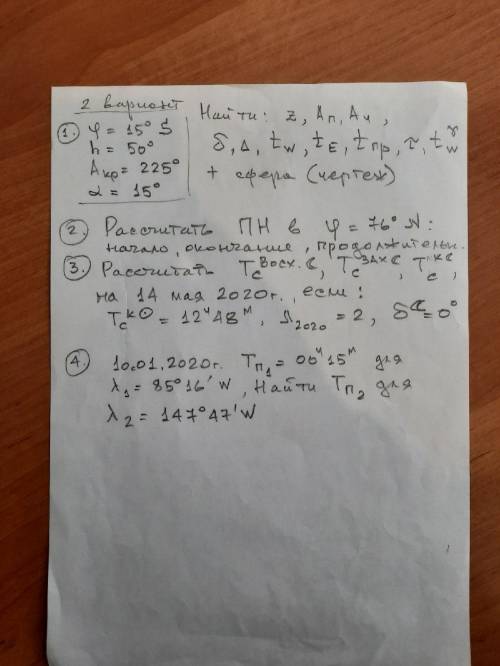 2 вариант
1. φ = 15° S
h = 50°
Aкр = 225°
α = 15°
Найти: z, Aп, Aч,
δ, Δ, tw, tE, tпр, τ, tw^γ
+ сфера (чертеж)
2. Рассчитать ПН в φ = 76° N:
начало, окончание, продолжительн.
3. Рассчитать Tс восх. ☾, Tс зах ☾, Tс к☾,
на 14 мая 2020г., если:
Tс к☉ = 12ч 48м, Л2020 = 2, δ☾ = 0°
4. 10.01.2020г. Tп1 = 00ч 15м для
λ1 = 85°16'W, Найти Tп2 для
λ2 = 147°47'W